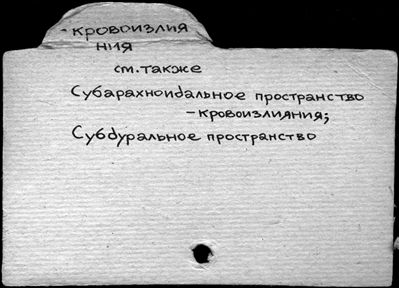 - кровоизлия
ния
см. также
Субарахноидальное пространство
- кровоизлияния;
Субдуральное пространство